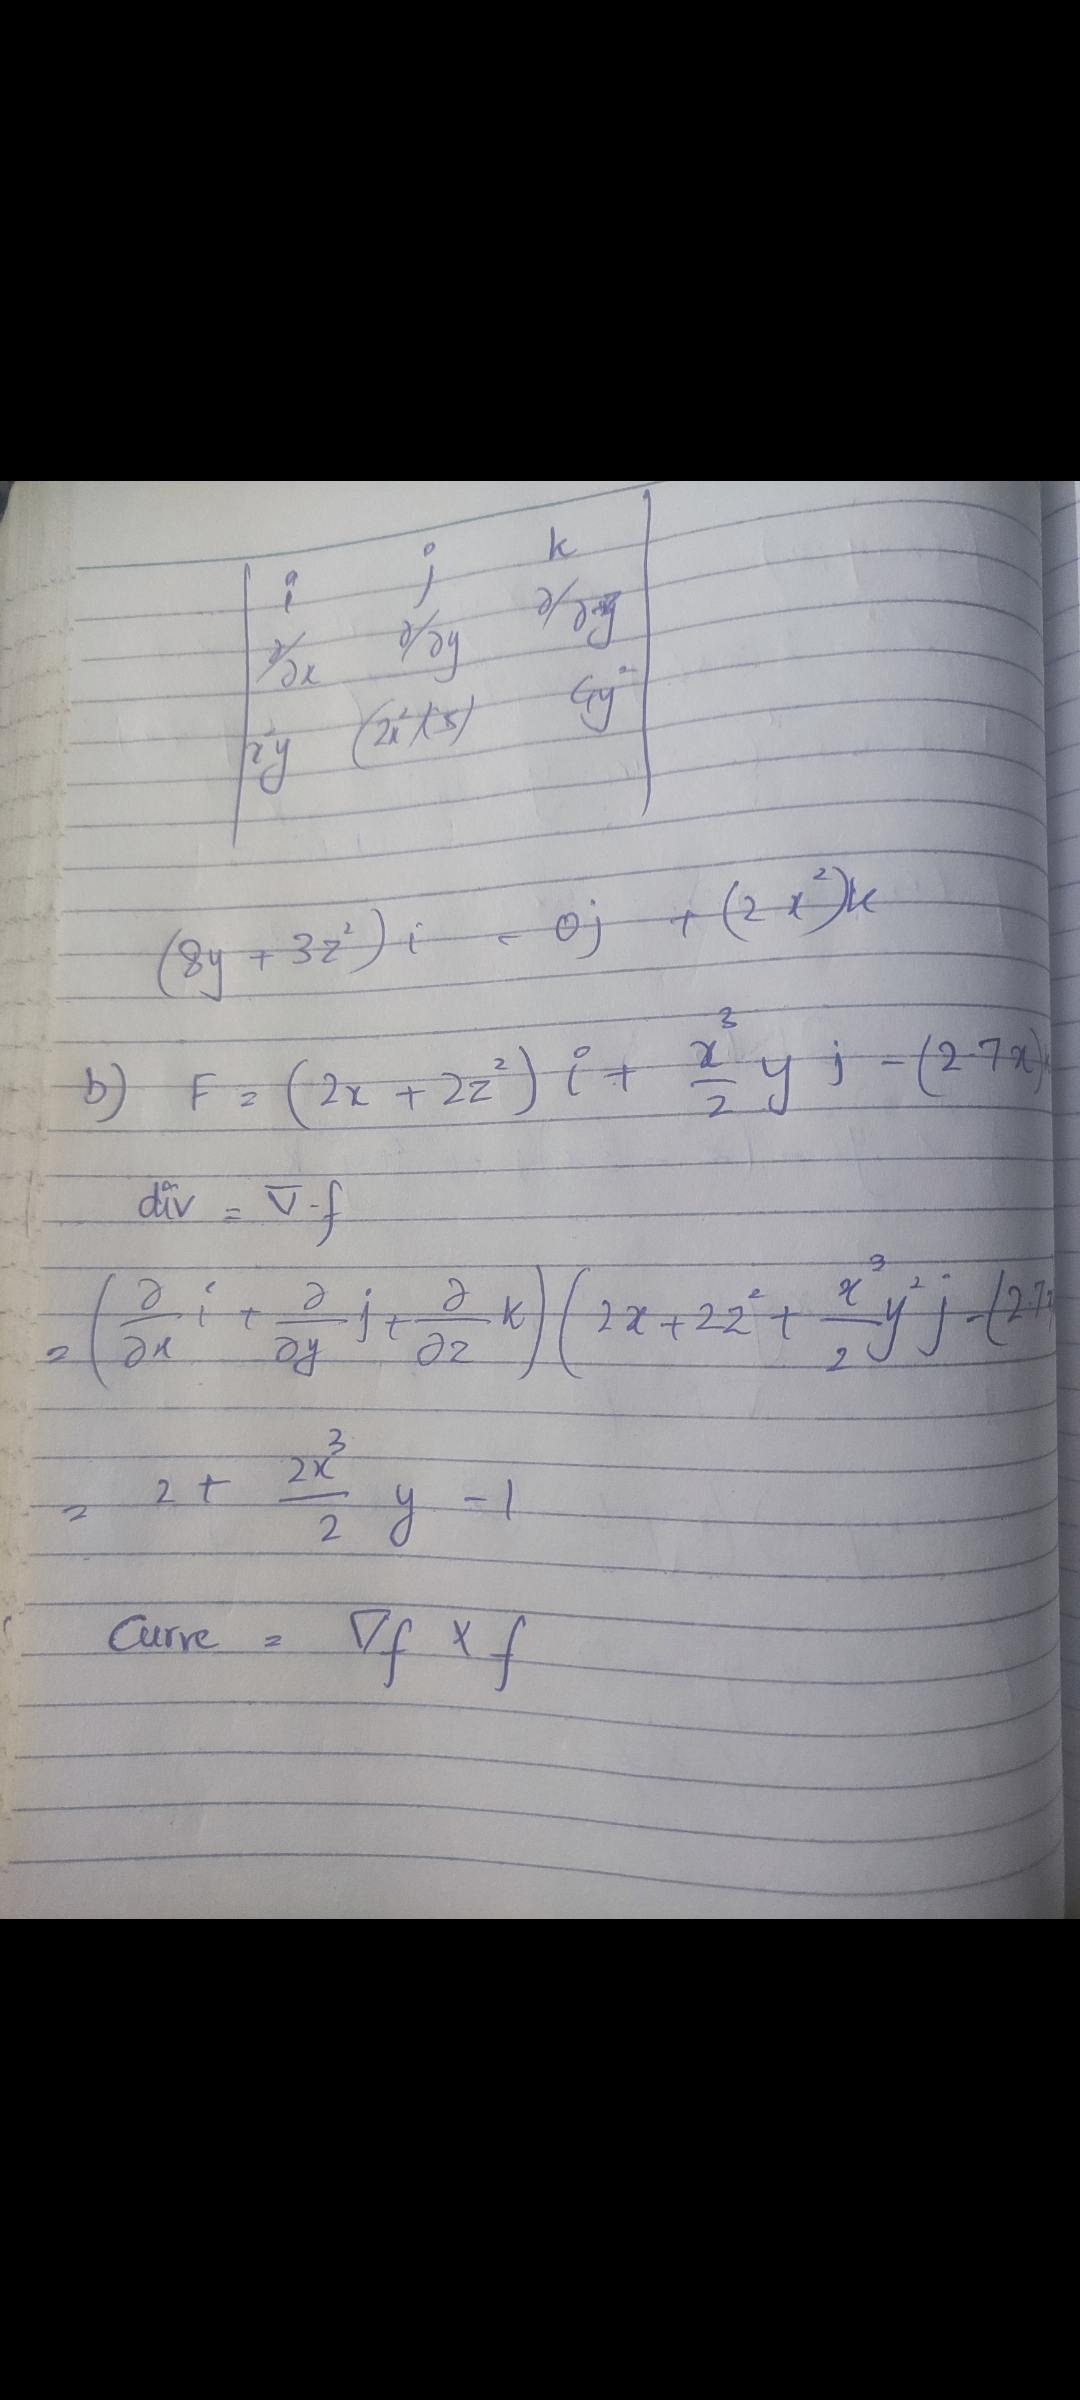 i j k
∂/∂x ∂/∂y ∂/∂
x²y (2x²)( ) 4y²
(8y + 3z²) i - 0j + (2x²)k
b) F = (2x + 2z²) i + x³/2 y j - (2-7x)
div = ∇·f
= (∂/∂x i + ∂/∂y j + ∂/∂z k) (2x + 2z² + x³/2 y² j - (2-7
= 2 + 2x³/2 y - 1
Curve = ∇f × f